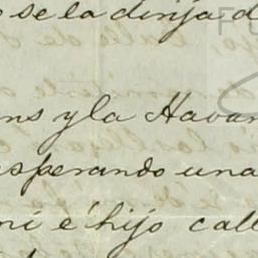 o se la dirija d
ns y la Havan
sperando una
mi é hijo call